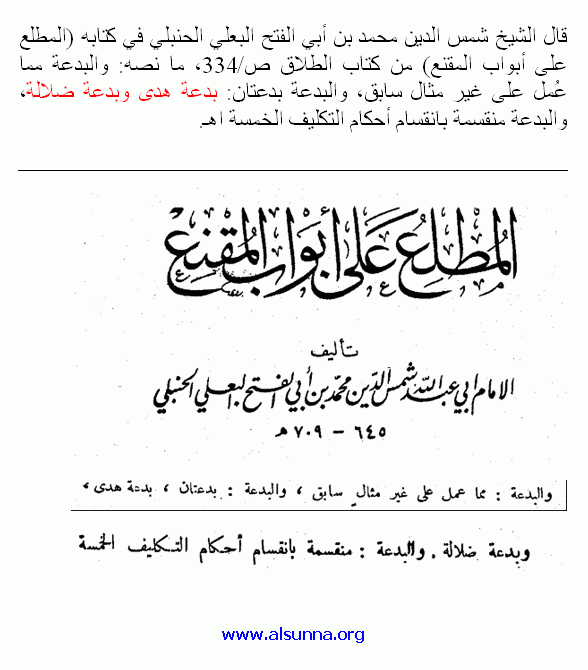 قال الشيخ شمس الدين محمد بن أبي الفتح البعلي الحنبلي في كتابه (المطلع
على أبواب المقنع) من كتاب الطلاق ص/334، ما نصه: والبدعة مما
عُمل على غير مثال سابق، والبدعة بدعتان: بدعة هدى وبدعة ضلالة،
والبدعة منقسمة بانقسام أحكام التكليف الخمسة اهـ.
المُطْلِعُ عَلَى أَبْوَابِ المُقْنِعِ
تأليف
الامام ابي عبد الله شمس الدين محمد بن أبي الفتح البعلي الحنبلي
٦٤٥ – ٧٠٩ هـ
والبدعة : مما عمل على غير مثال سابق ، والبدعة : بدعتان ، بدعة هدى ،
وبدعة ضلالة . والبدعة : منقسمة بانقسام أحكام التكليف الخمسة
www.alsunna.org